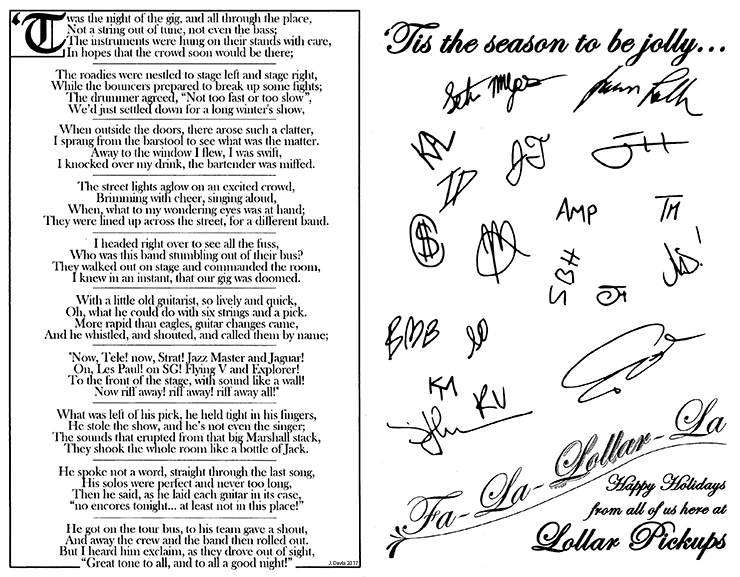 'Twas the night of the gig, and all through the place,
Not a string out of tune, not even the bass;
The instruments were hung on their stands with care,
In hopes that the crowd soon would be there;
The roadies were nestled to stage left and stage right,
While the bouncers prepared to break up some fights;
The drummer agreed, “Not too fast or too slow”,
We'd just settled down for a long winter's show,
When outside the doors, there arose such a clatter,
I sprang from the barstool to see what was the matter.
Away to the window I flew, I was swift,
I knocked over my drink, the bartender was miffed.
The street lights aglow on an excited crowd,
Brimming with cheer, singing aloud,
When, what to my wondering eyes was at hand;
They were lined up across the street, for a different band.
I headed right over to see all the fuss,
Who was this band stumbling out of their bus?
They walked out on stage and commanded the room,
I knew in an instant, that our gig was doomed.
With a little old guitarist, so lively and quick,
Oh, what he could do with six strings and a pick.
More rapid than eagles, guitar changes came,
And he whistled, and shouted, and called them by name;
"Now, Tele! now, Strat! Jazz Master and Jaguar!
On, Les Paul! on SG! Flying V and Explorer!
To the front of the stage, with sound like a wall!
Now riff away! riff away! riff away all!"
What was left of his pick, he held tight in his fingers,
He stole the show, and he's not even the singer;
The sounds that erupted from that big Marshall stack,
They shook the whole room like a bottle of Jack.
He spoke not a word, straight through the last song,
His solos were perfect and never too long,
Then he said, as he laid each guitar in its case,
“no encores tonight... at least not in this place!”
He got on the tour bus, to his team gave a shout,
And away the crew and the band then rolled out.
But I heard him exclaim, as they drove out of sight,
“Great tone to all, and to all a good night!”
J. Davis 2017
'Tis the season to be jolly...
Seth
JT
JH
TD
AMP
TM
$
SBH
BMB
KM
RV
Fa-La-Lollar-La
Happy Holidays
from all of us here at
Lollar Pickups